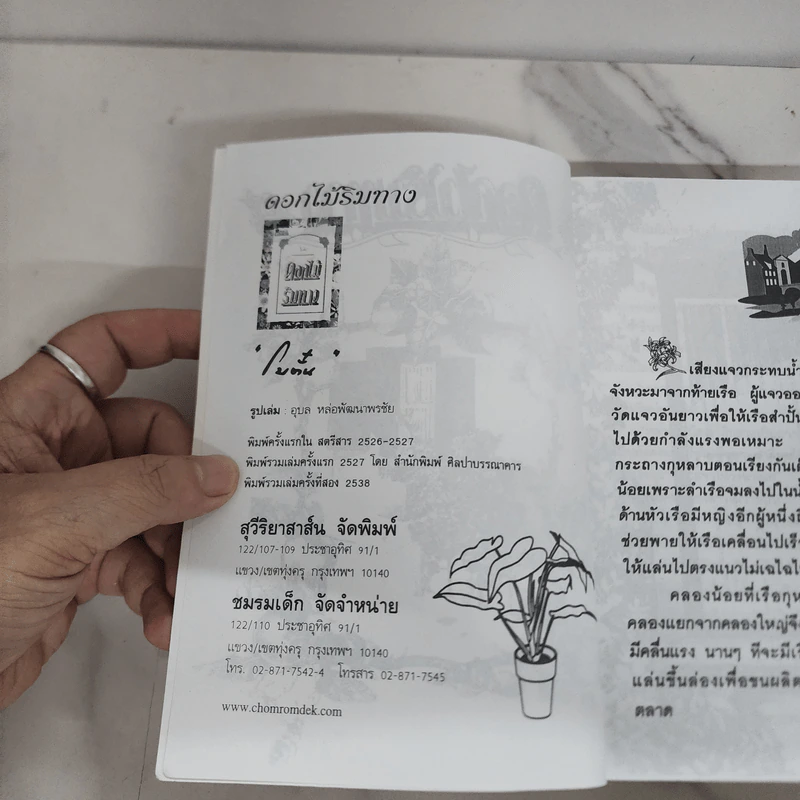 ดอกไม้ริมทาง
ดอกไม้
ริมทาง
"โบตั๋น"
รูปเล่ม : อุบล หล่อพัฒนาพรชัย
พิมพ์ครั้งแรกใน สตรีสาร 2526-2527
พิมพ์รวมเล่มครั้งแรก 2527 โดย สำนักพิมพ์ ศิลปาบรรณาคาร
พิมพ์รวมเล่มครั้งที่สอง 2538
สุวีริยาสาส์น จัดพิมพ์
122/107-109 ประชาอุทิศ 91/1
แขวง/เขตทุ่งครุ กรุงเทพฯ 10140
ชมรมเด็ก จัดจำหน่าย
122/110 ประชาอุทิศ 91/1
แขวง/เขตทุ่งครุ กรุงเทพฯ 10140
โทร. 02-871-7542-4 โทรสาร 02-871-7545
www.chomromdek.com
เสียงแจวกระทบน้ำ
จังหวะมาจากท้ายเรือ ผู้แจวออ
วัดแจวอันยาวเพื่อให้เรือสำปั้น
ไปด้วยกำลังแรงพอเหมาะ
กระถางกุหลาบตอนเรียงกันเต็
น้อยเพราะลำเรือจมลงไปในน้ำ
ด้านหัวเรือมีหญิงอีกผู้หนึ่งถื
ช่วยพายให้เรือเคลื่อนไปเร็
ให้แล่นไปตรงแนวไม่เฉไฉไ
คลองน้อยที่เรือกุห
คลองแยกจากคลองใหญ่จึง
มีคลื่นแรง นานๆ ทีจะมีเรื
แล่นขึ้นล่องเพื่อขนผลิต
ตลาด